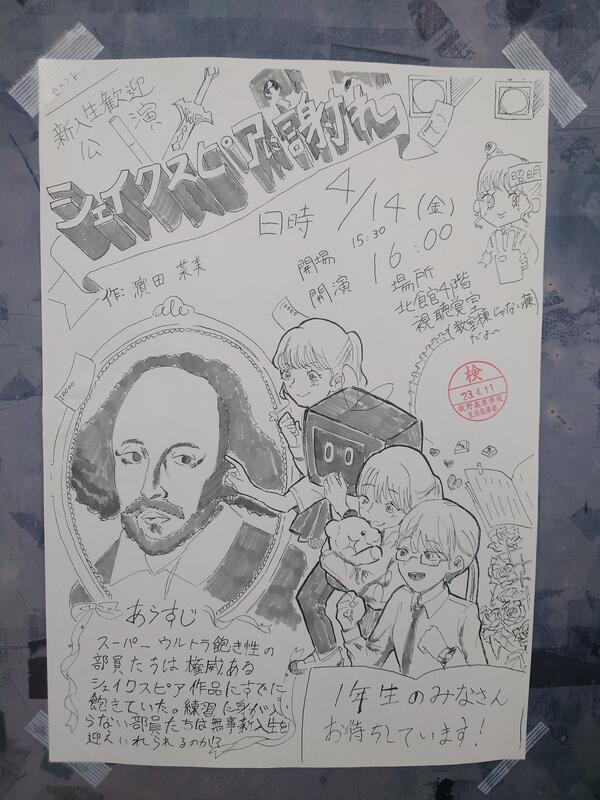 新入生歓迎
公演
シェイクスピアに謝れ
作: 濵田 菜美
日時 4/14(金)
開場 15:30
開演 16:00
場所
北館4階
視聴覚室
(教室棟じゃない棟)
だよー
照明
検
23.4.11
10000
あらすじ
スーパーウルトラ飽き性の
部員たちは権威ある
シェイクスピア作品にすでに
飽きていた。練習に身が入
らない部員たちは無事新入生を
迎え入れられるのか!?
1年生のみなさん
お待ちしています!